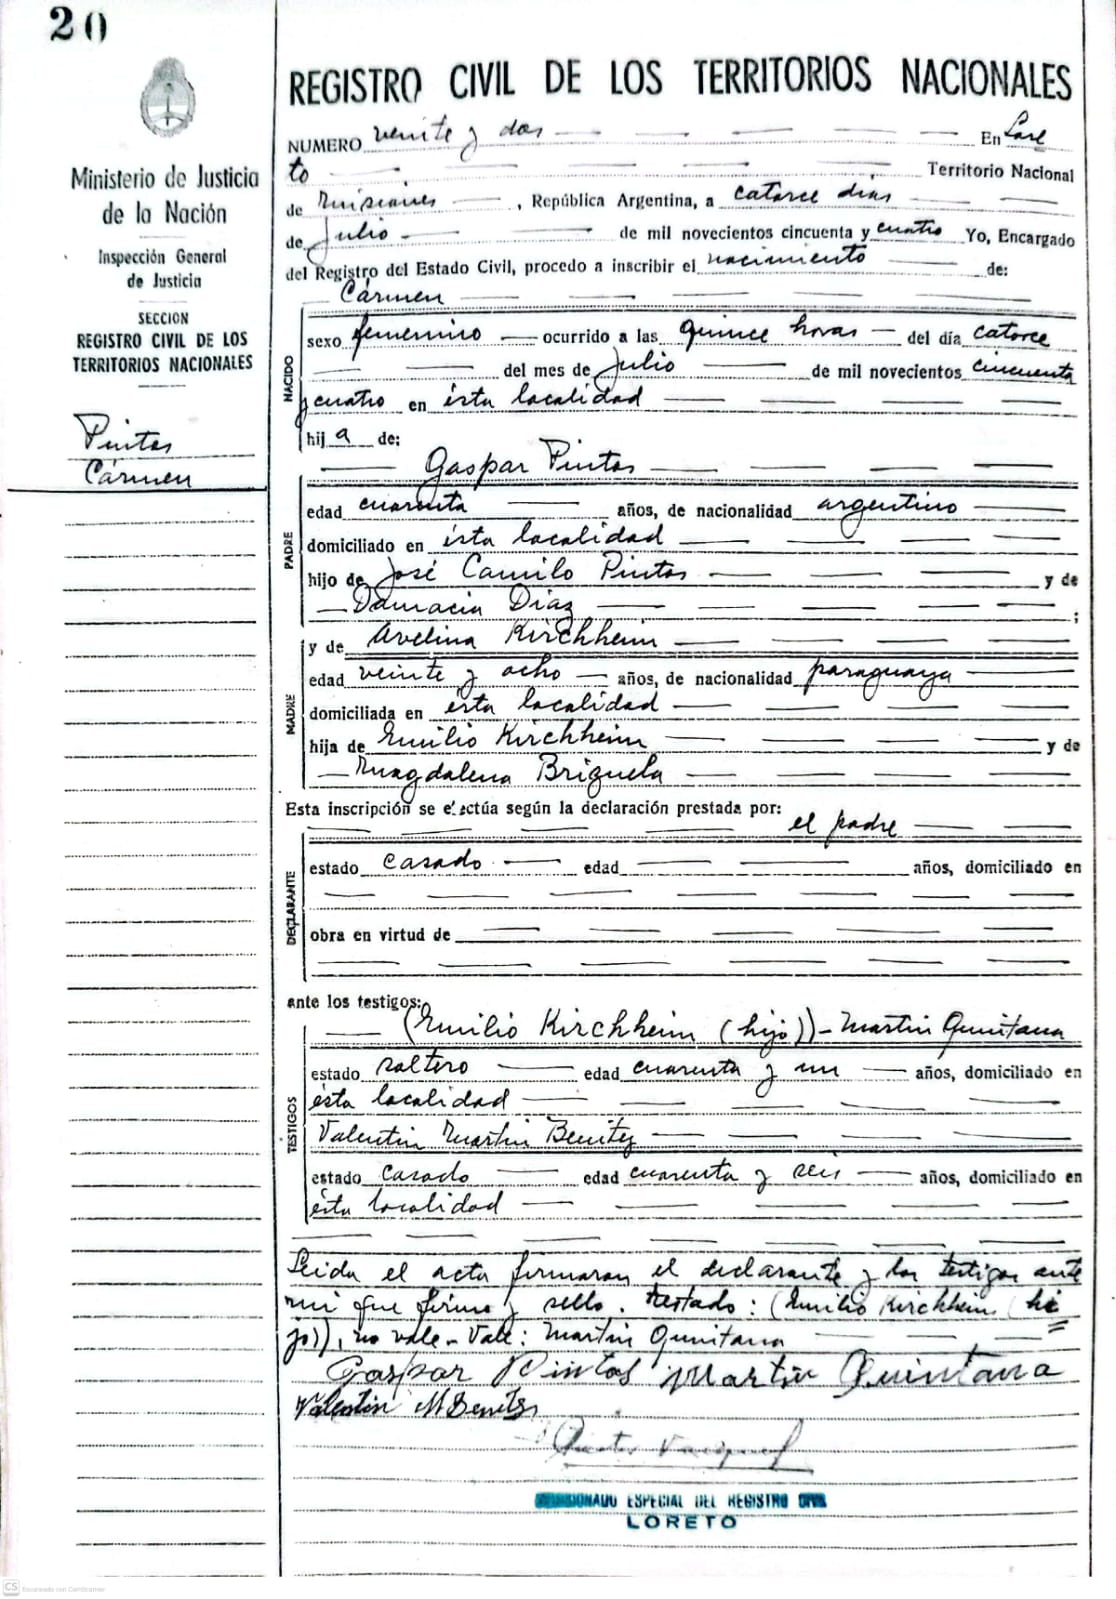 20
REGISTRO CIVIL DE LOS TERRITORIOS NACIONALES
Ministerio de Justicia
de la Nación
Inspección General
de Justicia
SECCION
REGISTRO CIVIL DE LOS
TERRITORIOS NACIONALES
Pintos
Cármen
NUMERO veinte y dos En Lore
to Territorio Nacional
de Misiones, República Argentina, a catorce días
de Julio de mil novecientos cincuenta y cuatro Yo, Encargado
del Registro del Estado Civil, procedo a inscribir el nacimiento de:
Cármen
NACIDO
sexo femenino ocurrido a las quince horas del día catorce
del mes de Julio de mil novecientos cincuenta
y cuatro en ésta localidad
hija de:
Gaspar Pintos
PADRE
edad cuarenta años, de nacionalidad argentino
domiciliado en ésta localidad
hijo de José Camilo Pintos y de
Damacia Díaz ;
y de Avelina Kirchheim
MADRE
edad veinte y ocho años, de nacionalidad paraguaya
domiciliada en ésta localidad
hija de Emilio Kirchheim y de
Magdalena Brizuela
Esta inscripción se efectúa según la declaración prestada por:
el padre
DECLARANTE
estado casado edad años, domiciliado en
obra en virtud de
ante los testigos:
(Emilio Kirchheim (hijo)) - Martin Quintana
TESTIGOS
estado soltero edad cuarenta y un años, domiciliado en
ésta localidad
Valentin Martin Benitez
estado casado edad cuarenta y seis años, domiciliado en
ésta localidad
Leida el acta firmaron el declarante y los testigos ante
mi que firmo y sello. Testado: (Emilio Kirchheim (hi
jo)), no vale - Vale: Martin Quintana
Gaspar Pintos Martin Quintana
Valentin M Benitez
COMISIONADO ESPECIAL DEL REGISTRO CIVIL
LORETO
CS Escaneado con CamScanner